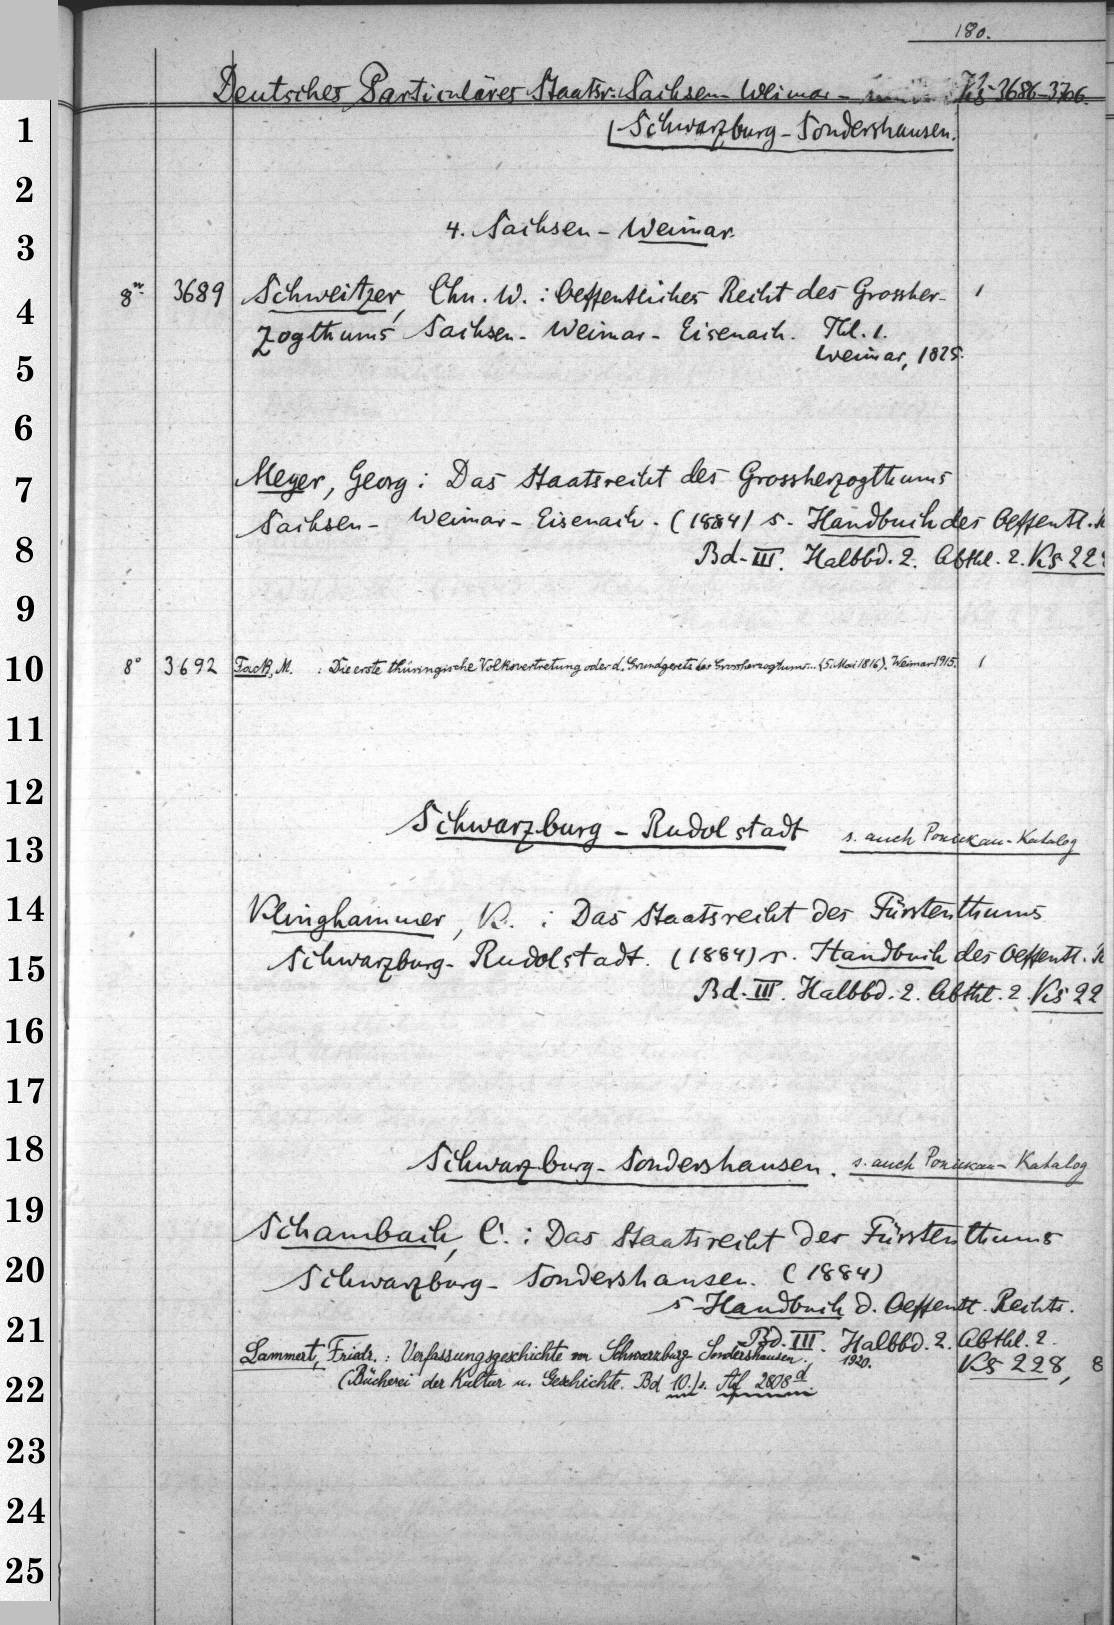 180.
Deutsches Particuläres Staatsr. Sachsen-Weimar- Ks 3686-3706.
Schwarzburg-Sondershausen.
4. Sachsen-Weimar.
8° 3689 Schweitzer, Chn. W.: Oeffentliches Recht des Grossher- 1
zogthums Sachsen-Weimar-Eisenach. Thl. 1.
Weimar, 1825.
Meyer, Georg: Das Staatsrecht des Grossherzogthums
Sachsen-Weimar-Eisenach. (1884) s. Handbuch des Oeffentl.
Bd. III. Halbbd. 2. Abthl. 2. Ks 22
8° 3692 Fack, M. : Die erste thüringische Volksvertretung oder d. Grundgesetz des Grossherzogtums... (5. Mai 1816). Weimar 1915. 1
Schwarzburg-Rudolstadt s. auch Ponickau-Katalog
Klinghammer, K.: Das Staatsrecht des Fürstenthums
Schwarzburg-Rudolstadt. (1884) s. Handbuch des Oeffentl.
Bd. III. Halbbd. 2. Abthl. 2. Ks 22
Schwarzburg-Sondershausen. s. auch Ponickau-Katalog
Schambach, C.: Das Staatsrecht des Fürstenthums
Schwarzburg-Sondershausen. (1884)
s. Handbuch d. Oeffentl. Rechts.
Bd. III. Halbbd. 2. Abthl. 2.
Lammert, Friedr.: Verfassungsgeschichte von Schwarzburg Sondershausen. 1920. Ks 228, 8
(Bücherei der Kultur u. Geschichte. Bd 10.) s. Af 2808d
1
2
3
4
5
6
7
8
9
10
11
12
13
14
15
16
17
18
19
20
21
22
23
24
25